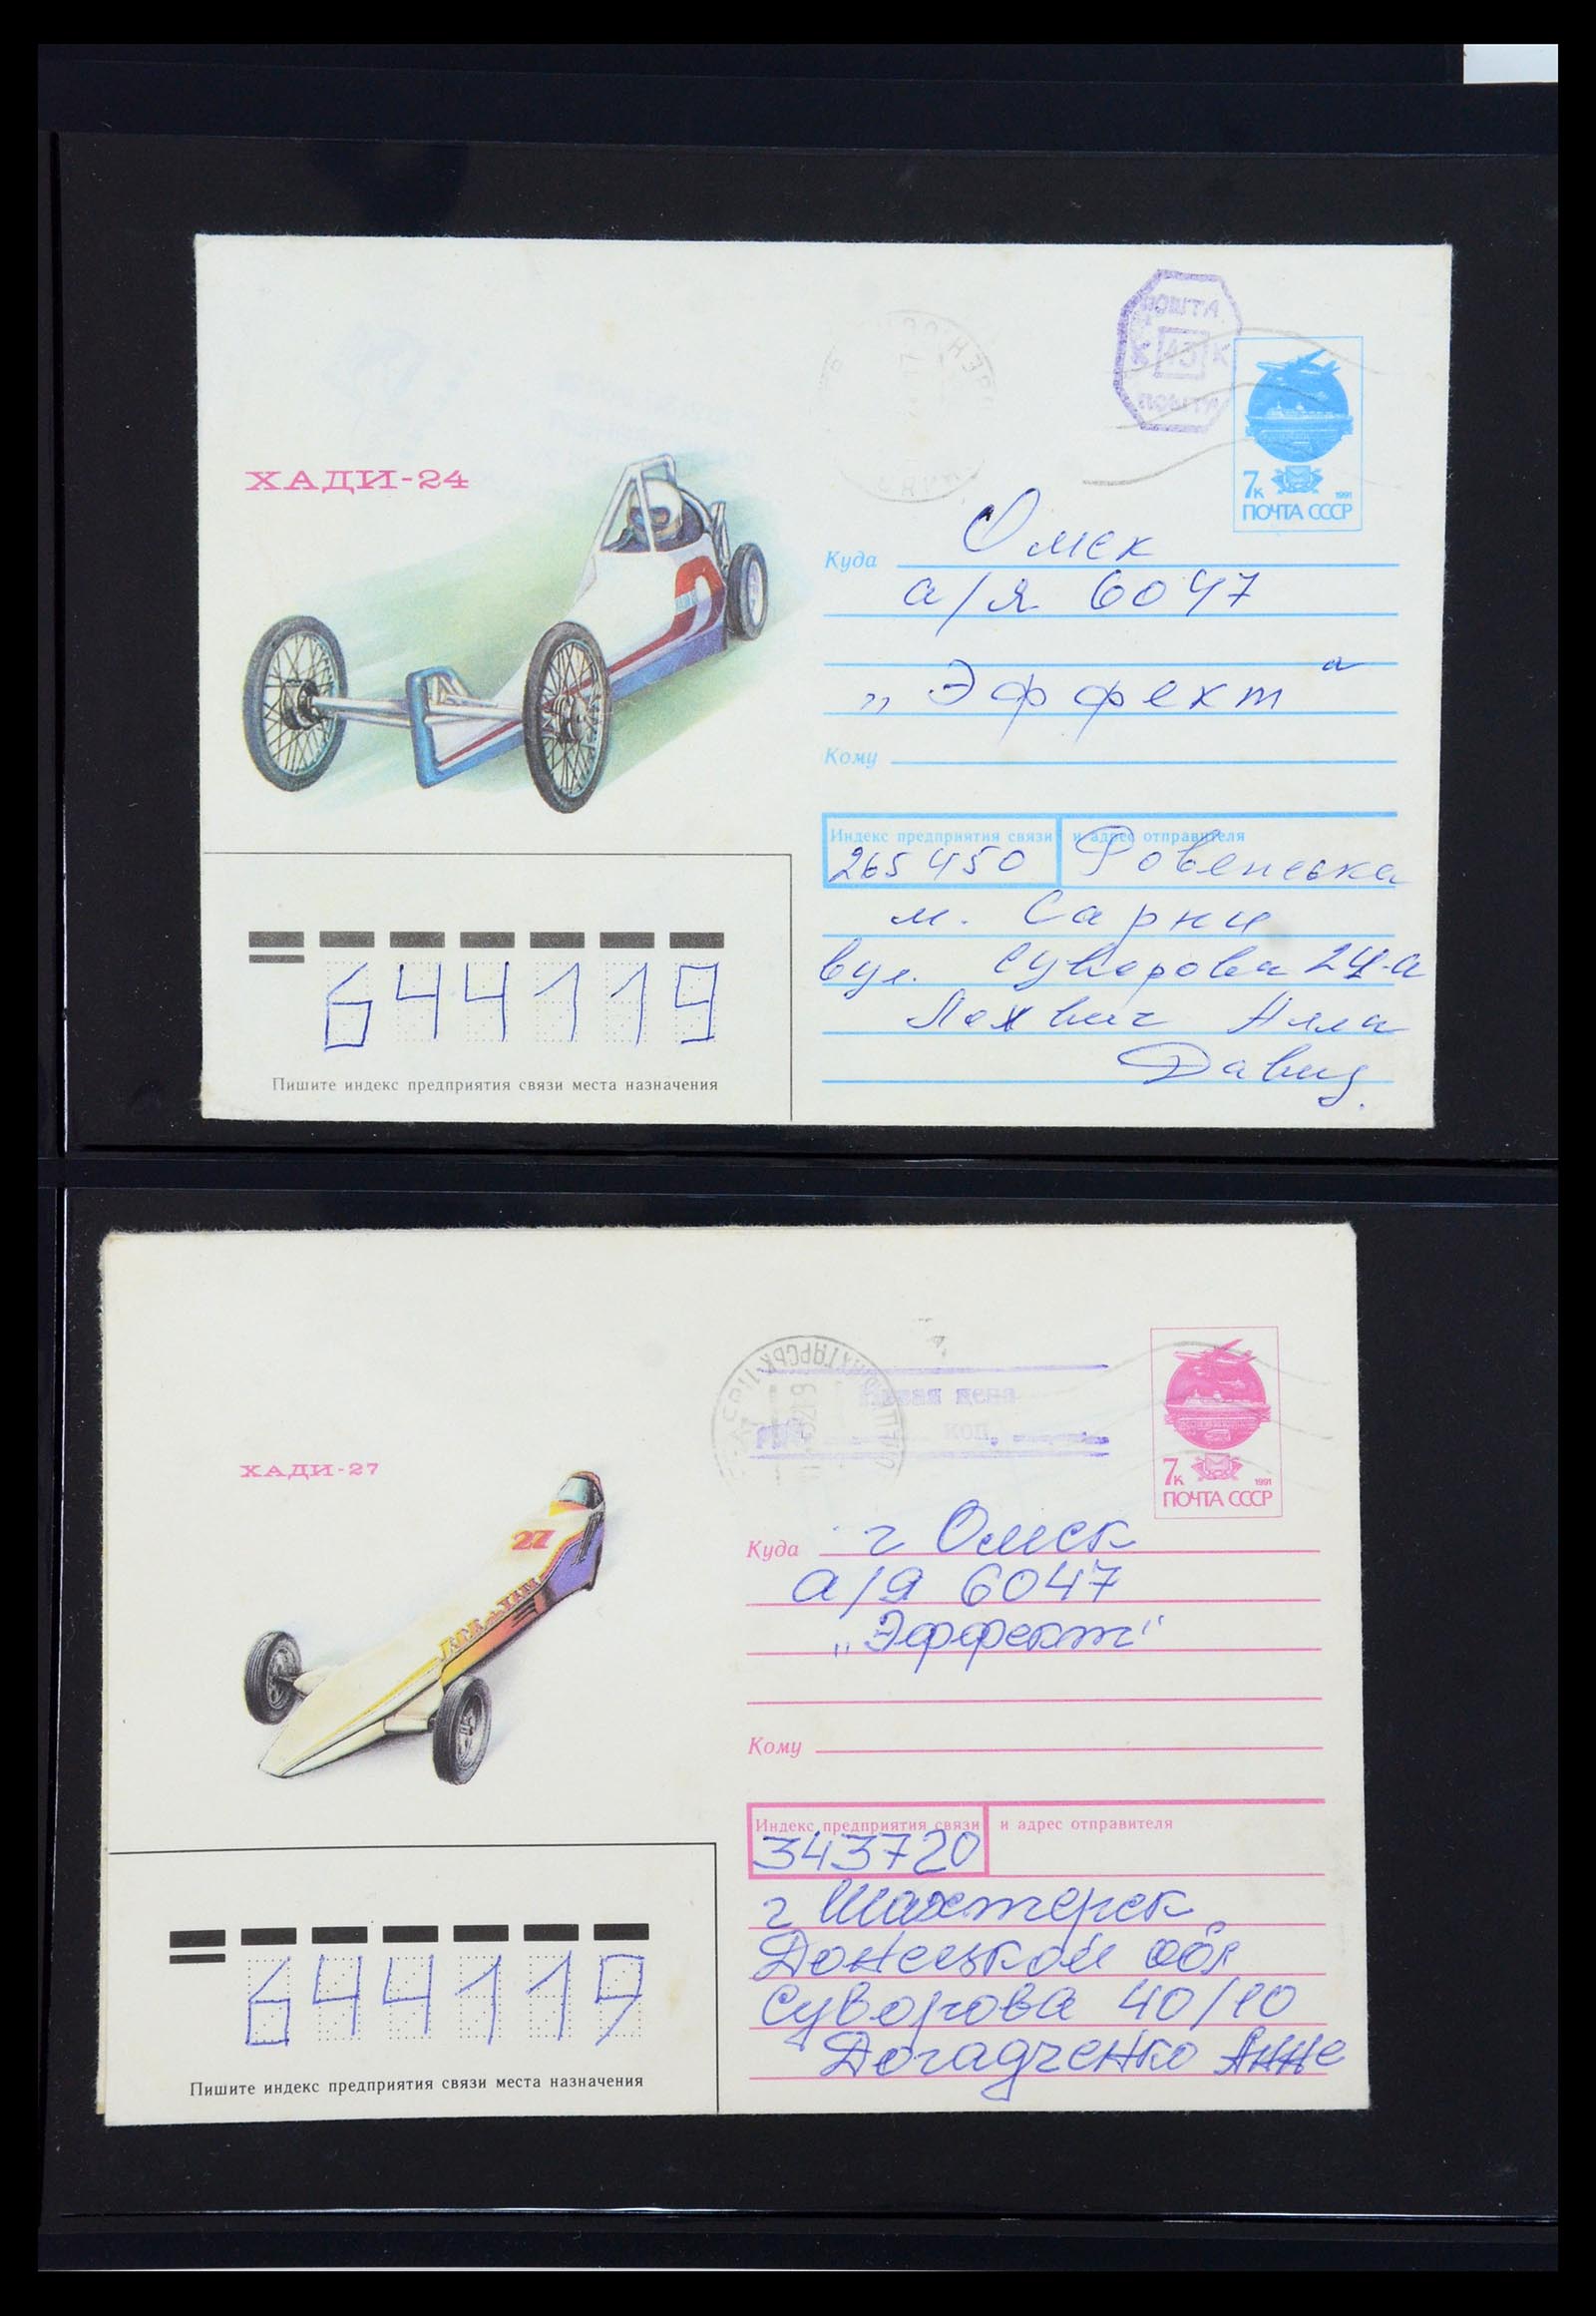 ХАДИ-24
ПОШТА
К 43 К
ПОШТА
7к 1991
ПОЧТА СССР
Куда Омск
а/я 6047
„Эффект“
Кому
Индекс предприятия связи и адрес отправителя
265450 Ровенська
м. Сарни
вул. Суворова 24-а
Алла
Давид.
644119
Пишите индекс предприятия связи места назначения
ХАДИ-27
цена
коп.
7к 1991
ПОЧТА СССР
27
Куда г Омск
а/я 6047
„Эффект“
Кому
Индекс предприятия связи и адрес отправителя
343720
г Шахтерск
Донецкой обл
Суворова 40/10
Догадченко Анне
644119
Пишите индекс предприятия связи места назначения